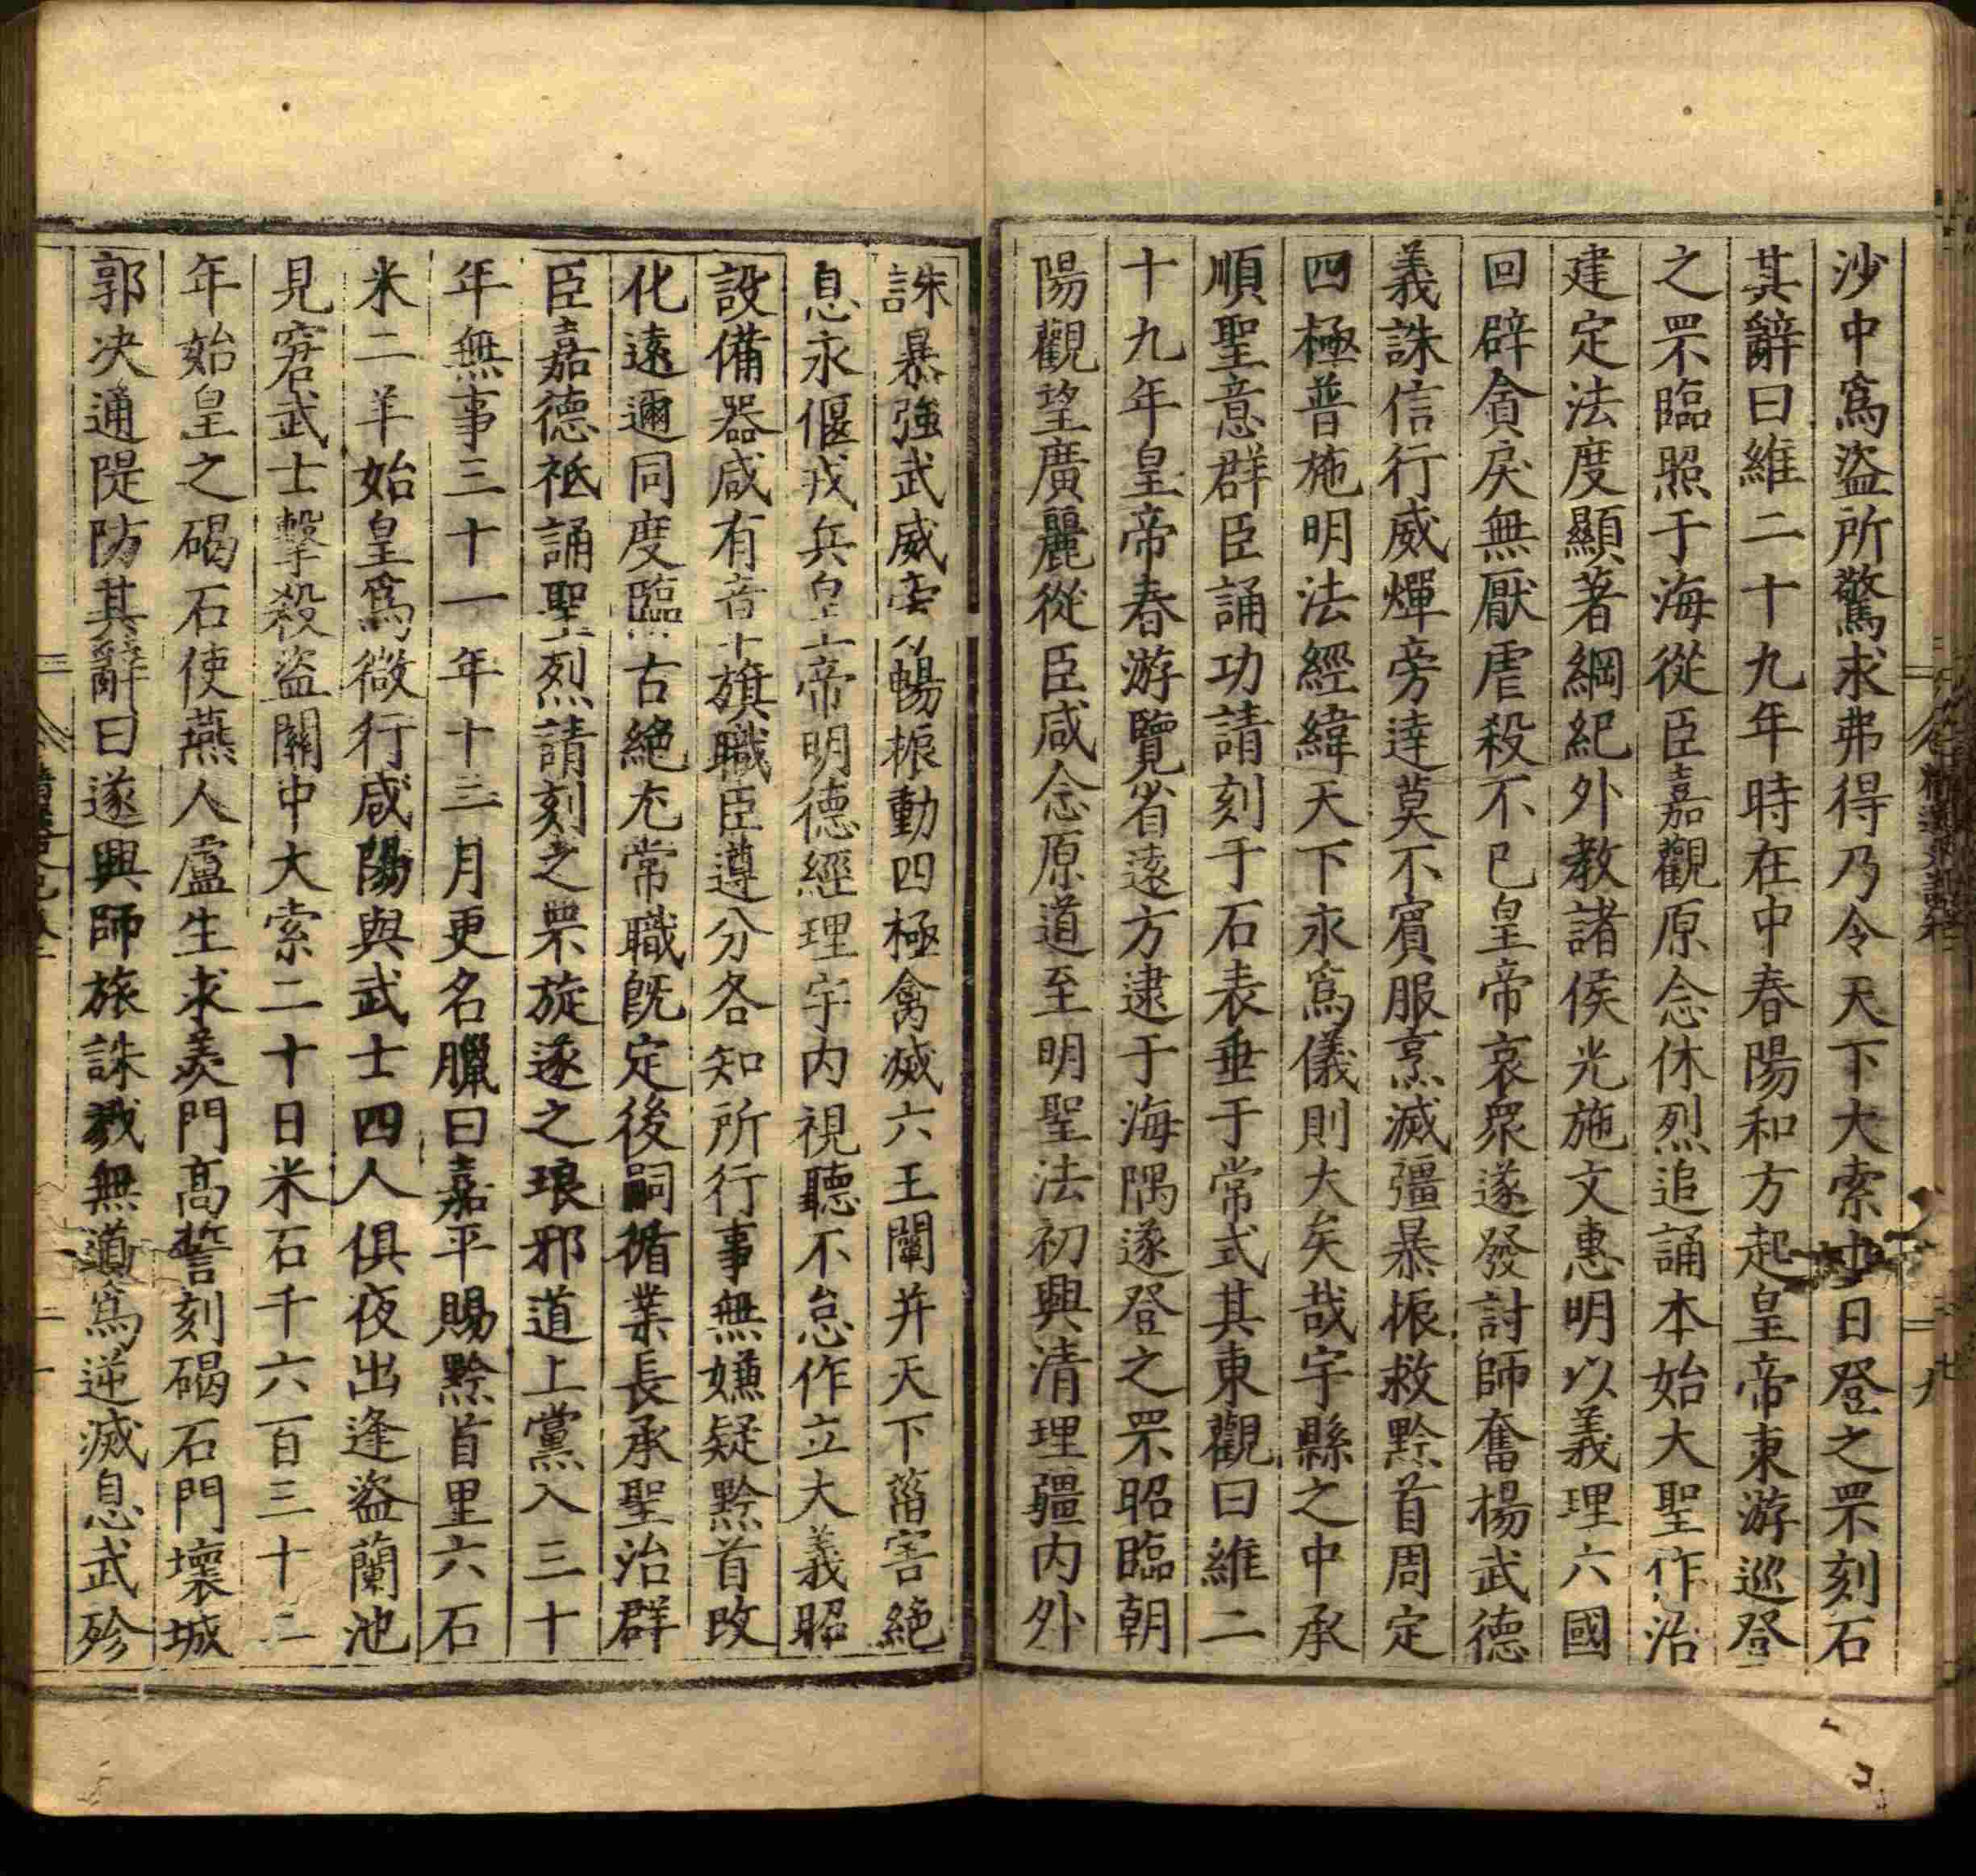 沙中爲盜所驚求弗得乃令天下大索十日登之罘刻石
其辭曰維二十九年時在中春陽和方起皇帝東游巡登
之罘臨照于海從臣嘉觀原念休烈追誦本始大聖作治
建定法度顯著綱紀外教諸侯光施文惠明以義理六國
回辟貪戾無厭虐殺不已皇帝哀眾遂發討師奮楊武德
義誅信行威燀旁達莫不賓服烹滅彊暴振救黔首周定
四極普施明法經緯天下永爲儀則大矣哉宇縣之中承
順聖意群臣誦功請刻于石表垂于常式其東觀曰維二
十九年皇帝春游覽省遠方逮于海隅遂登之罘昭臨朝
陽觀望廣麗從臣咸念原道至明聖法初興清理疆內外
誅暴強武威旁暢振動四極禽滅六王闡并天下菑害絕
息永偃戎兵皇帝明德經理宇內視聽不怠作立大義昭
設備器咸有章旗職臣遵分各知所行事無嫌疑黔首改
化遠邇同度臨古絕尤常職既定後嗣循業長承聖治群
臣嘉德祗誦聖烈請刻之罘旋遂之琅邪道上黨入三十
年無事三十一年十三月更名臘曰嘉平賜黔首里六石
米二羊始皇爲微行咸陽與武士四人俱夜出逢盜蘭池
見窘武士擊殺盜關中大索二十日米石千六百三十二
年始皇之碣石使燕人盧生求羨門高誓刻碣石門壞城
郭决通隄防其辭曰遂興師旅誅戮無道爲逆滅息武殄